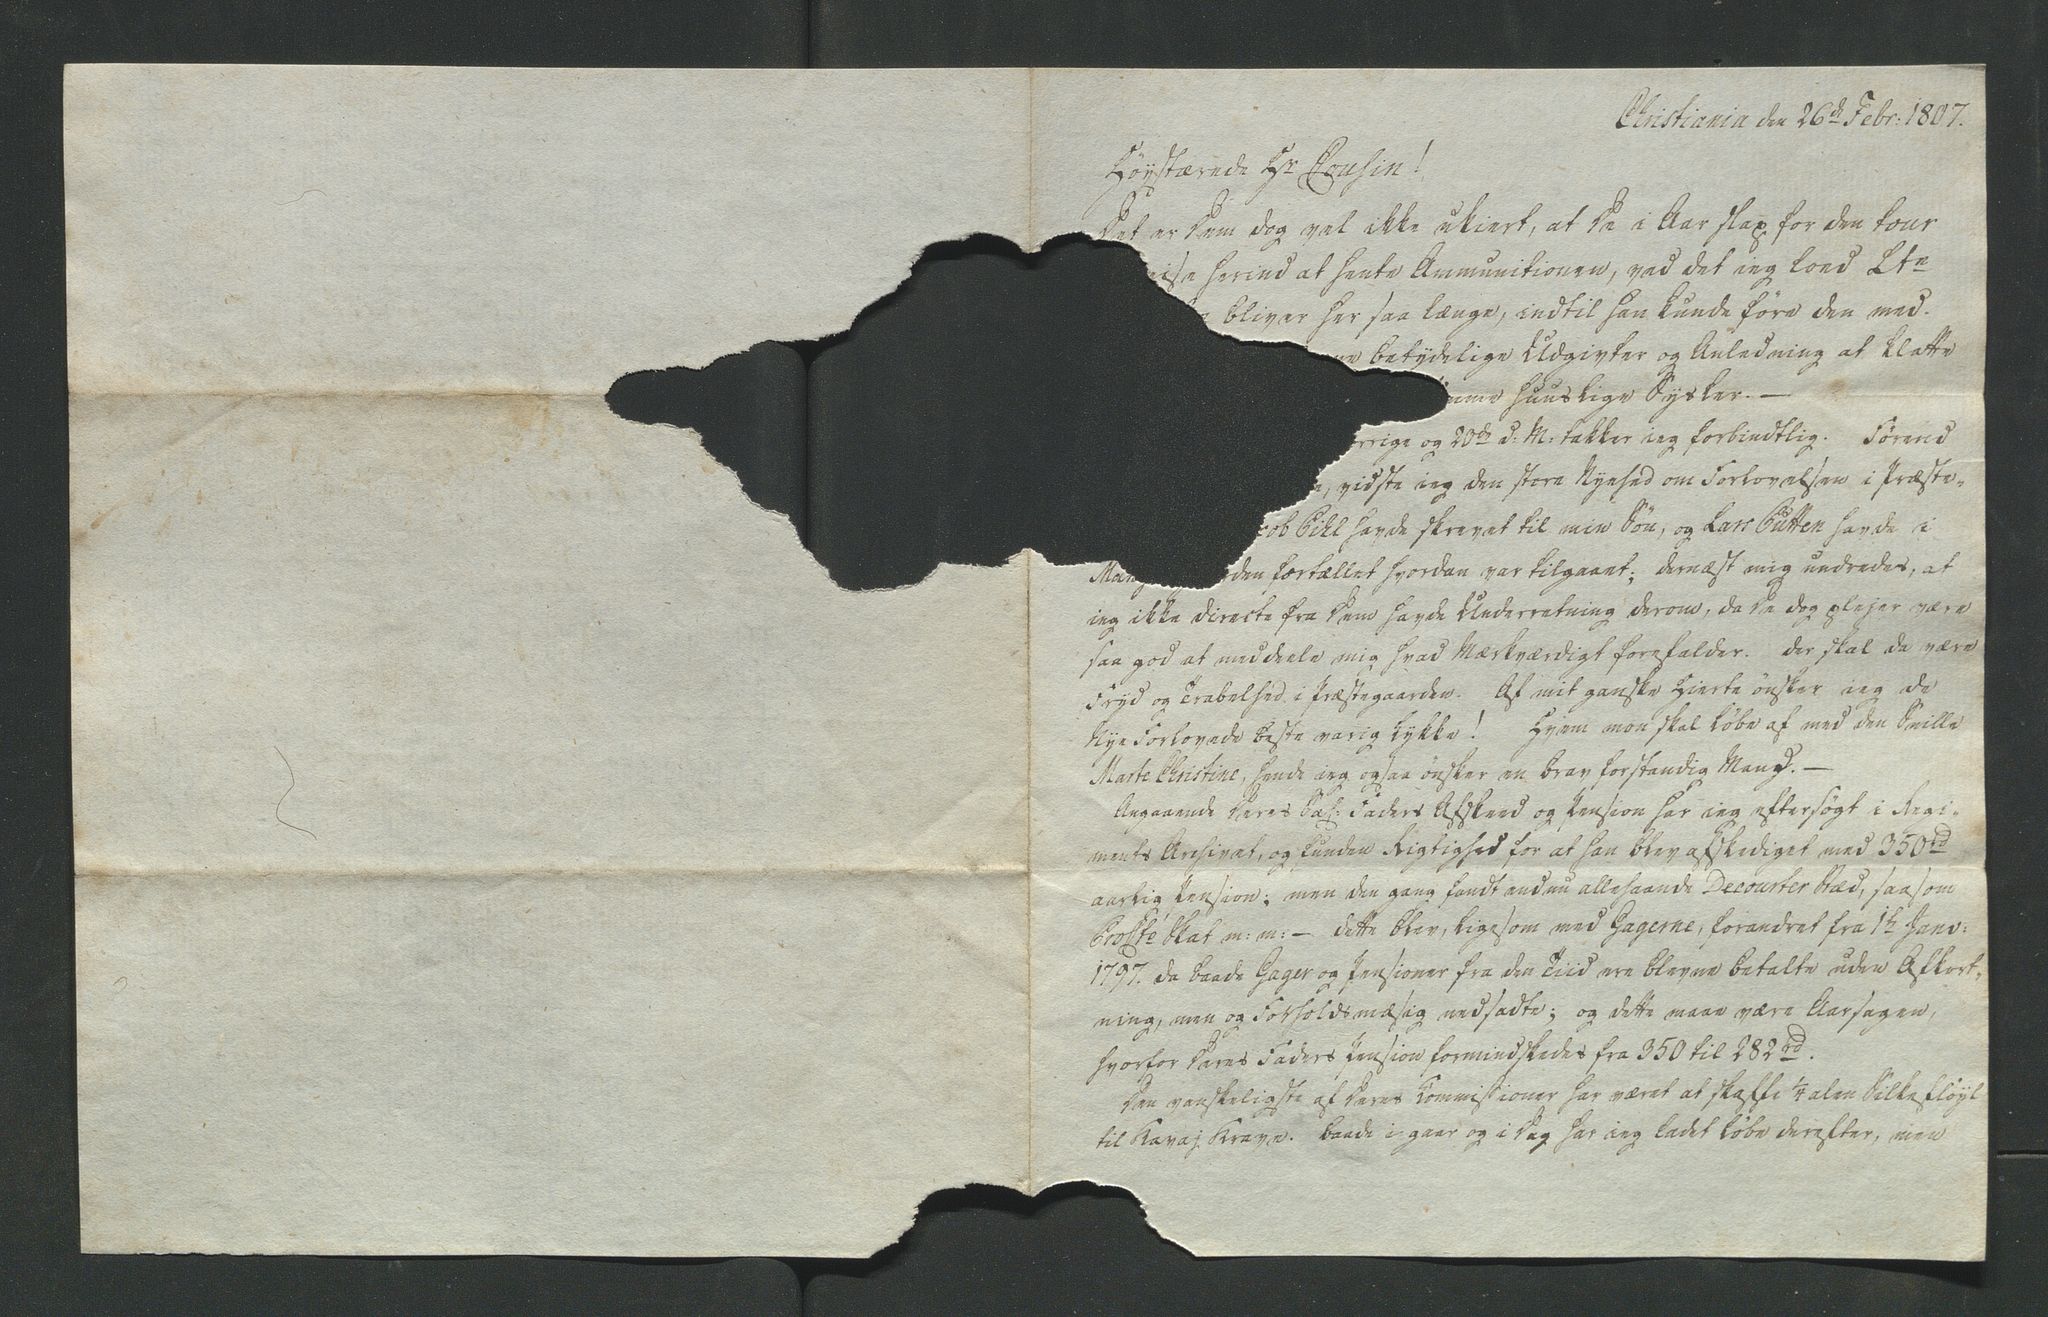 Christiania den 26de Febr: 1807.
Høystærede Hr Cousin!
Det er Dem dog vel ikke ukiert, at De i Aar slap for den tour
herind at hente Ammunitionen, ved det ieg loed Ltn
bliver her saa længe, indtil han kunde føre den med.
betydelige Udgivter og Anledning at klatte
huuslige Sysler. —
forrige og 20de d: M: takker ieg forbindtlig. Førend
vidste ieg den store Nyehed om Forlovelsen i Præste-
Jacob Pihl havde skrevet til min Søn, og Lars Bütten havde i
fortællet hvordan var tilgaaet; dernæst mig undredes, at
ieg ikke directe fra Dem havde Underretning derom, da De dog plejer være
saa god at meddeele mig hvad Mærkværdigt forefalder. der skal da være
Fryd og Travelhed i Præstegaarden. Af mit ganske Hierte ønsker ieg de
Nye Forlovede beste varig Lykke! Hvem mon skal løbe af med den Snille
Marte Christine, hende ieg ogsaa ønsker en brav forstandig Mand. —
Angaaende Deres Sal: Faders Afskeed og Pension har ieg eftersøgt i Regi-
ments Archivet, og funden Rigtighed for at han blev afskediget med 350 rd
aarlig Pension; men den gang fandt endnu allehaande Decourter Sted, saasom
Skat m: m: — dette blev, ligesom med Gagerne, forandret fra 1te Janv:
1797. da baade Gager og Pensioner fra den Tiid ere blevne betalte uden Afkort-
ning, men og Forholdsmæsig nedsadte; og dette maae være Aarsagen,
hvorfor Deres Faders Pension formindskedes fra 350 til 282 rd.
Den vanskeligste af Deres Commissioner har været at skaffe 1/4 alen Silkefløyl
til Kavaj Krave. baade i gaar og i Dag har ieg ladet løbe derefter, men